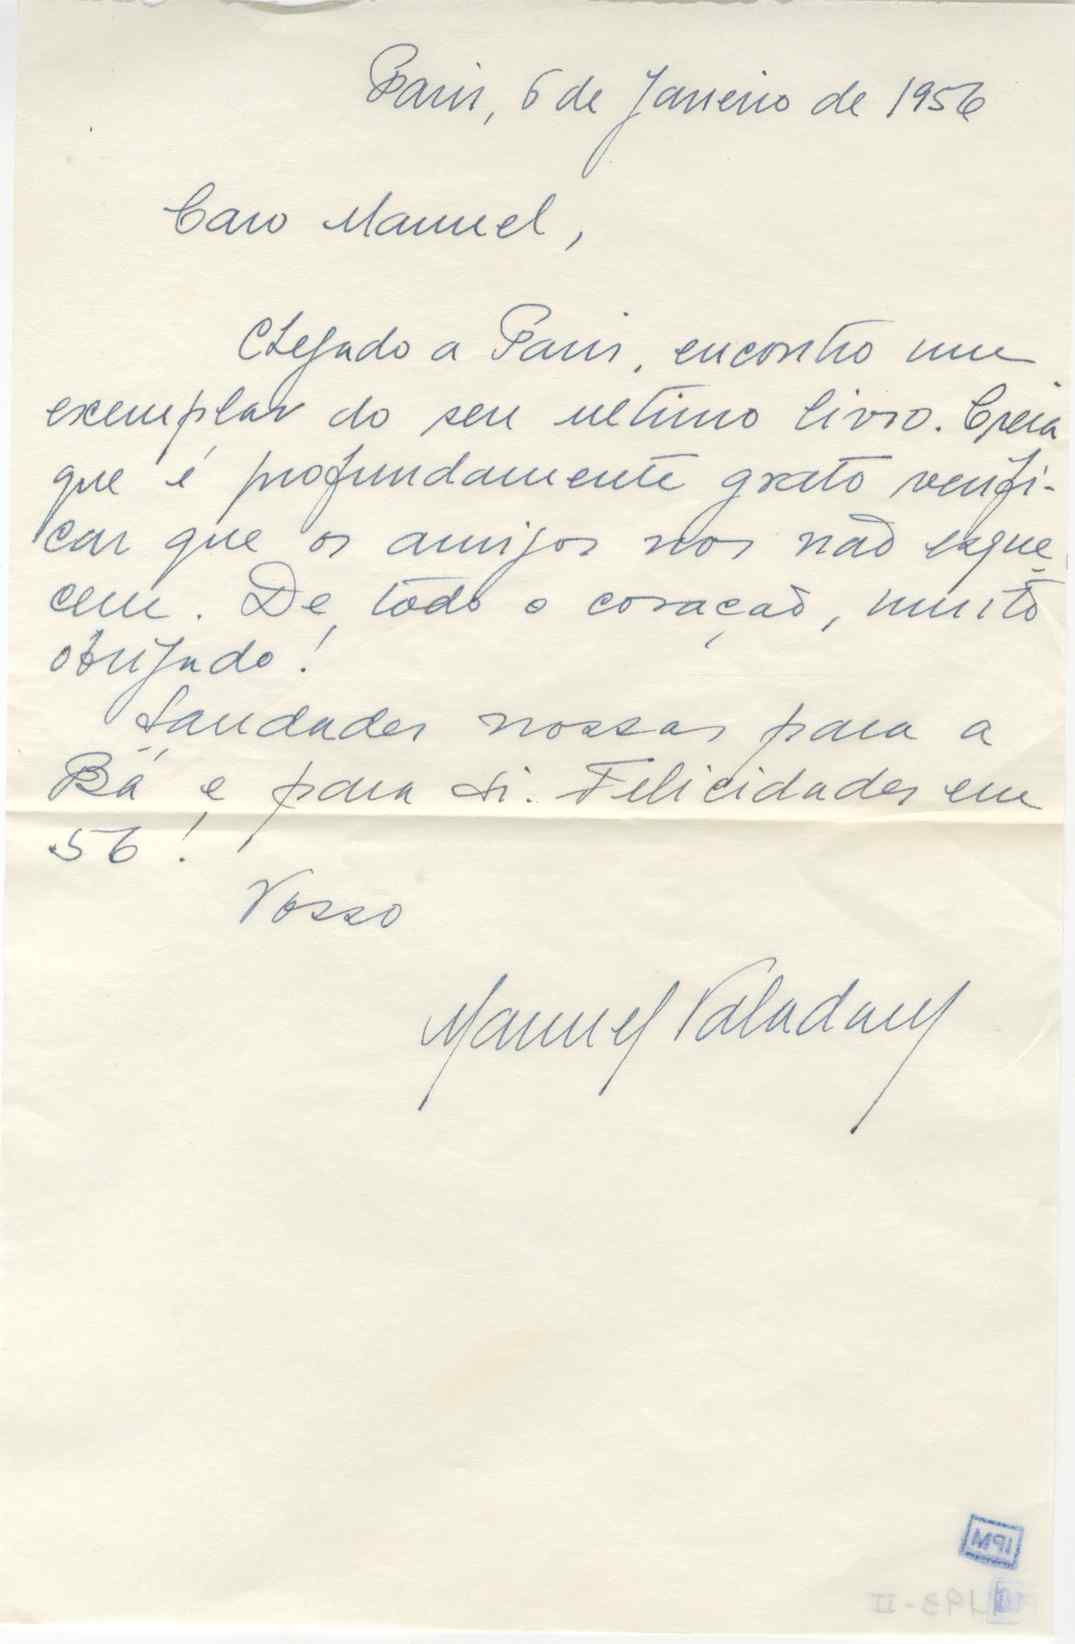 Paris, 6 de Janeiro de 1956
Caro Manuel,
Chegado a Paris, encontro um
exemplar do seu ultimo livro. Creia
que é profundamente grato verifi-
car que os amigos nos não esque-
cem. De todo o coração, muito
obrigado!
Saudades nossas para a
Bá e para si. Felicidades em
56!
Vosso
Manuel Valadares
IPM